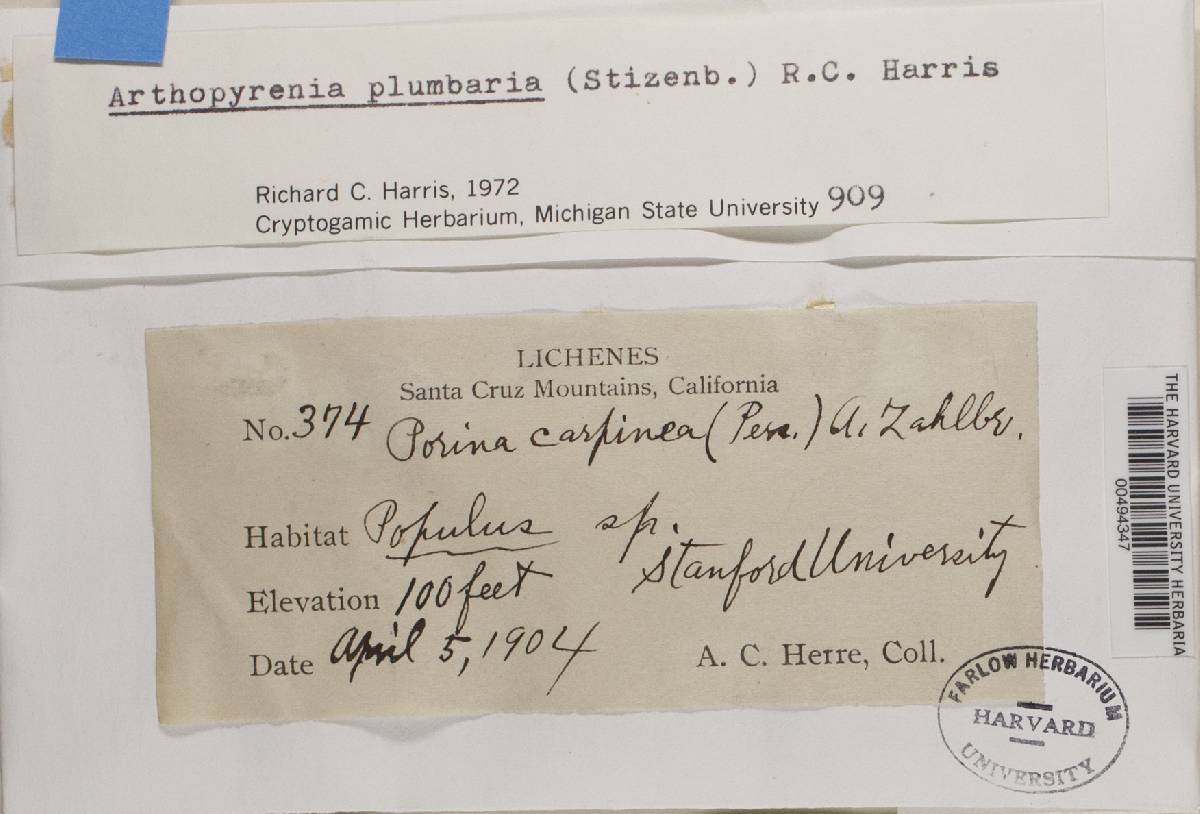 Arthopyrenia plumbaria (Stizenb.) R.C. Harris
Richard C. Harris, 1972
Cryptogamic Herbarium, Michigan State University 909
LICHENES
Santa Cruz Mountains, California
No. 374 Porina carpinea (Pers.) A. Zahlbr.
Habitat Populus sp.
Stanford University
Elevation 100 feet
Date April 5, 1904
A. C. Herre, Coll.
FARLOW HERBARIUM
HARVARD
UNIVERSITY
THE HARVARD UNIVERSITY HERBARIA
00494347